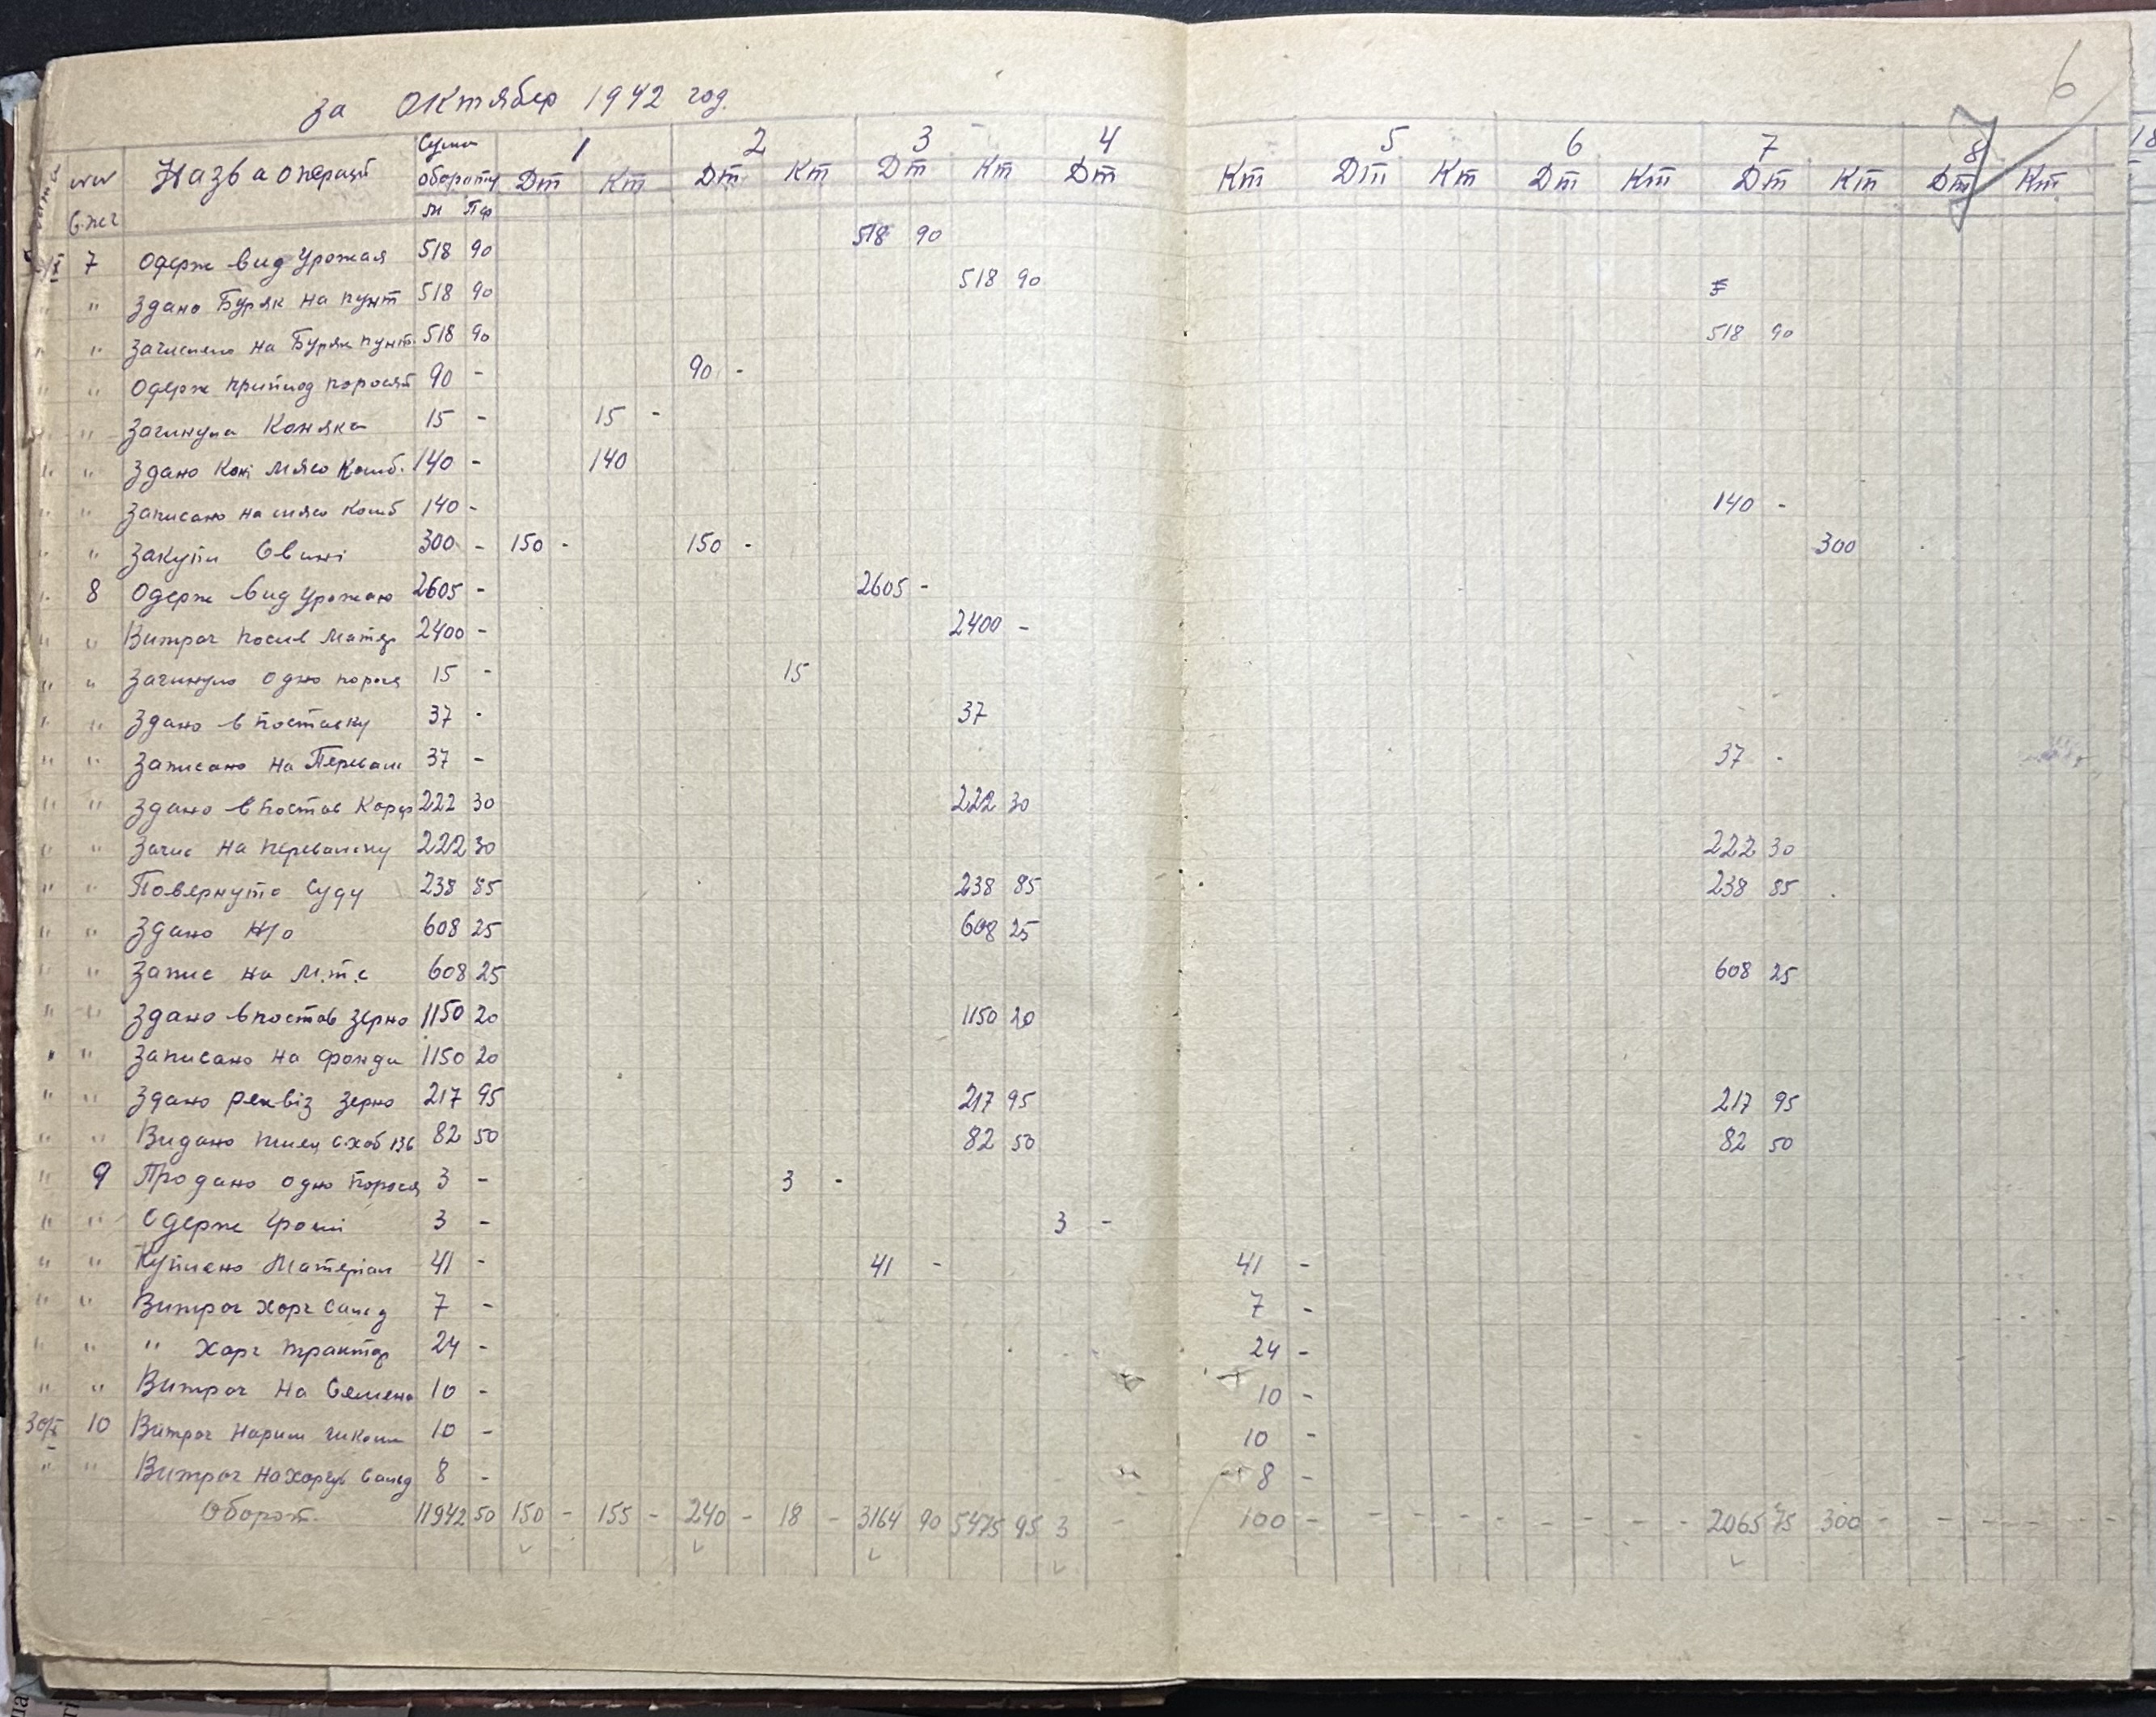 6
за Октябер 1942 год.
Назва операцій Сума обороту 1 2 3 4 5 6 7 8
Дт Кт Дт Кт Дт Кт Дт Кт Дт Кт Дт Кт Дт Кт Дт Кт
7 Одерж вид Урожая 518 90 518 90
" " Здано Буряк на пункт 518 90 518 90
" " Зачислено на Буряк пункт. 518 90 518 90
" " Одерж приплод поросят 90 - 90 -
" " Загинула Коняка 15 - 15 -
" " Здано Коні Мясо Комб. 140 - 140
" " Записано на мясо комб 140 - 140 -
" " Закупи Свині 300 - 150 - 150 - 300
" 8 Одерж вид Урожаю 2605 - 2605 -
" " Витрач посів Матер 2400 - 2400 -
" " Загинуло одно порося 15 - 15
" " Здано в поставку 37 - 37
" " Записано на Перевалк 37 - 37 -
" " Здано в постав 222 30 222 30
" " Зачис на перевалку 222 30 222 30
" " Повернуто Суду 238 85 238 85 238 85
" " Здано Н/о 608 25 608 25
" " Запис на М.т.с 608 25 608 25
" " Здано в постав зерно 1150 20 1150 20
" " Записано на фонди 1150 20
" " Здано реквіз зерно 217 95 217 95 217 95
" " Видано 82 50 82 50 82 50
" 9 Продано одно порося 3 - 3 -
" " Одерж гроші 3 - 3 -
" " Куплено Матеріал 41 - 41 - 41 -
" " Витрач харч 7 - 7 -
" " " Харч трактор 24 - 24 -
" " Витрач на Семена 10 - 10 -
10 Витрач 10 - 10 -
" " Витрач на 8 - 8 -
Оборот. 11942 50 150 - 155 - 240 - 18 - 3164 90 5475 95 3 - 100 - - - - - - - - - 2065 75 300 - - - - - -